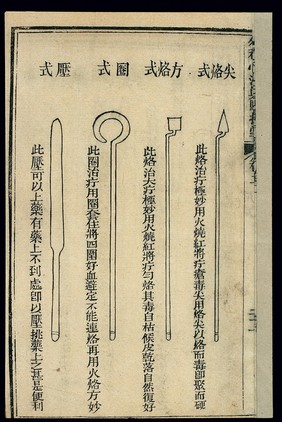 尖烙式
方烙式
圈式
壓式
此烙治疔極妙用火燒紅將疔瘡毒尖用烙尖以烙而毒即聚而硬
此烙治大疔極妙用火燒紅將疔勻烙其毒自枯候皮乾落自然復好
此圈治疔用圈套住將四圍好血避定不能連烙再用火烙方妙
此壓可以上藥有藥上不到處卽以壓挑藥上之甚是便利